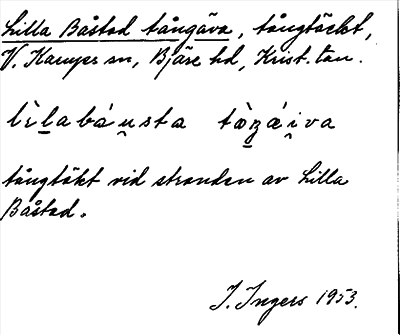 Lilla Båstad tångäva, tångtäckt,
V. Karups sn, Bjäre hd, Krist. län.
lìlabáu̯sta tòŋái̯va
tångtäkt vid stranden av Lilla
Båstad.
J. Ingers 1953.